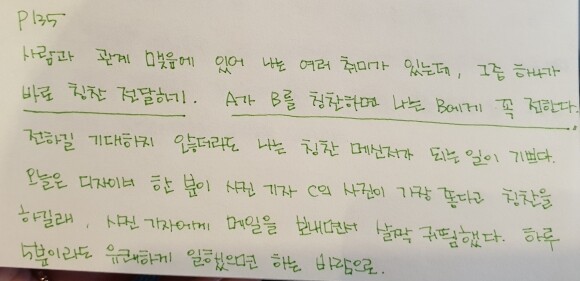 P135
사람과 관계 맺음에 있어 나는 여러 취미가 있는데, 그중 하나가
바로 칭찬 전달하기. A가 B를 칭찬하면 나는 B에게 꼭 전한다.
전하길 기대하지 않더라도 나는 칭찬 메신저가 되는 일이 기쁘다.
오늘은 디자이너 한 분이 사진 기자 C의 사진이 가장 좋다고 칭찬을
하길래, 사진 기자에게 메일을 보내면서 살짝 귀띔했다. 하루
5분이라도 유쾌하게 일했으면 하는 바람으로.